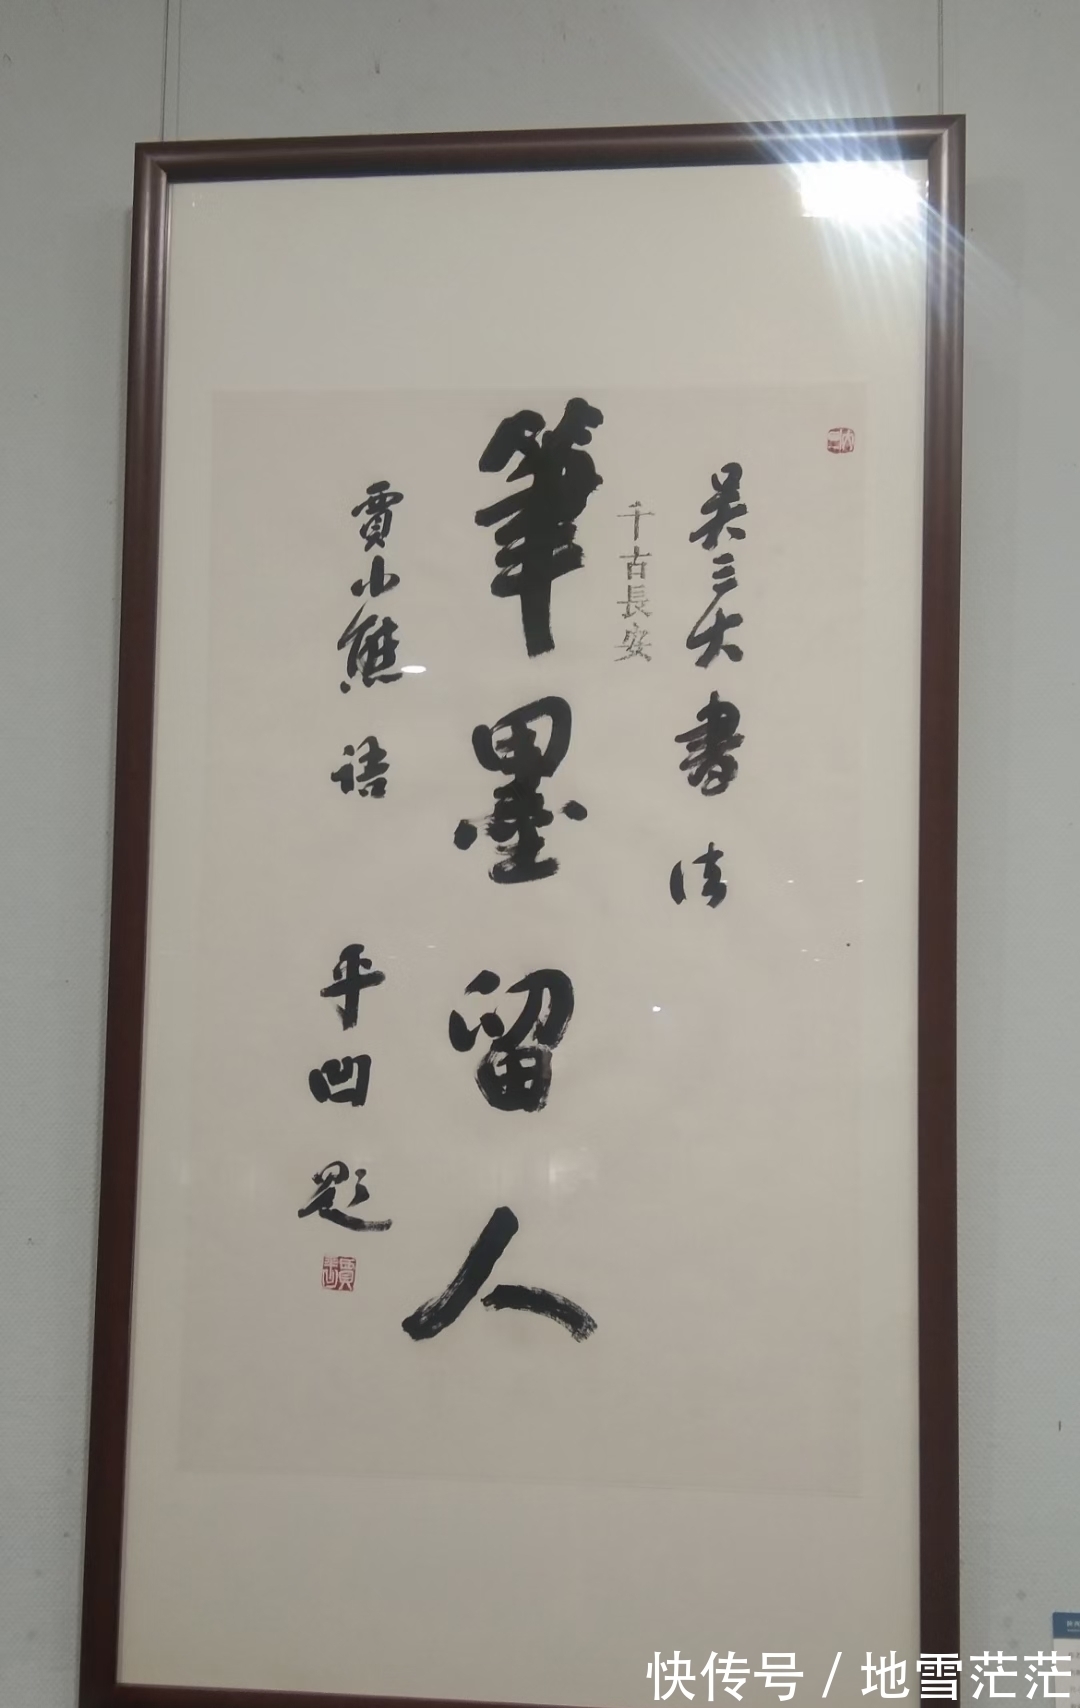 吴三大書法
千古長安
筆墨留人
賈小熊語
平凹題
快传号 / 地雪茫茫